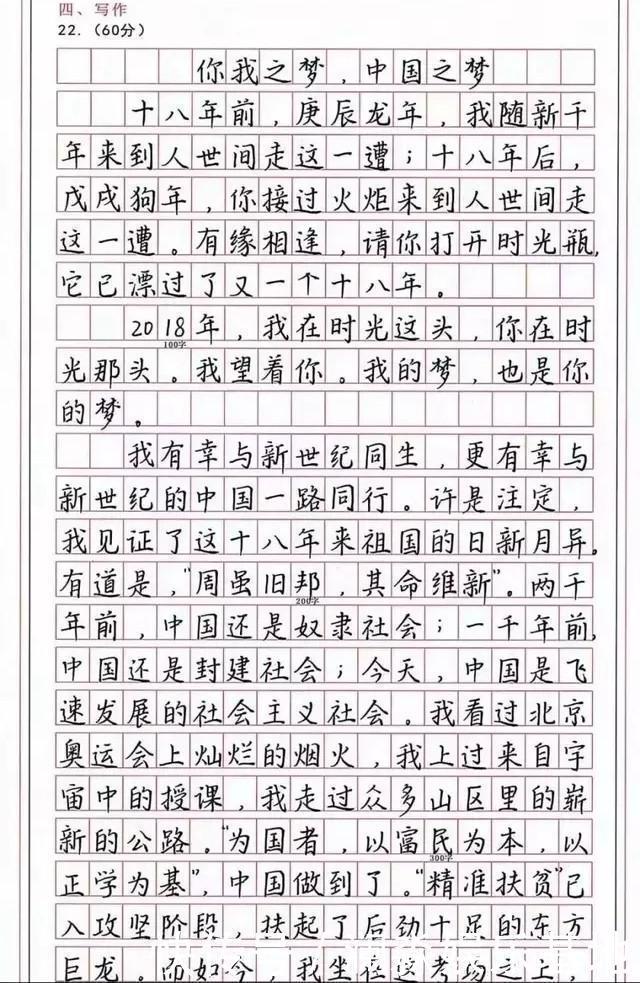 四、写作
22.（60分）
你我之梦，中国之梦
十八年前，庚辰龙年，我随新千
年来到人世间走这一遭；十八年后，
戊戌狗年，你接过火炬来到人世间走
这一遭。有缘相逢，请你打开时光瓶，
它已漂过了又一个十八年。
2018年，我在时光这头，你在时
100字
光那头。我望着你。我的梦，也是你
的梦。
我有幸与新世纪同生，更有幸与
新世纪的中国一路同行。许是注定，
我见证了这十八年来祖国的日新月异。
有道是，“周虽旧邦，其命维新”。两千
200字
年前，中国还是奴隶社会；一千年前，
中国还是封建社会；今天，中国是飞
速发展的社会主义社会。我看过北京
奥运会上灿烂的烟火，我上过来自宇
宙中的授课，我走过众多山区里的崭
新的公路。“为国者，以富民为本，以
300字
正学为基”，中国做到了。“精准扶贫”已
入攻坚阶段，扶起了后劲十足的东方
巨龙。而如今，我坐在这考场之上，